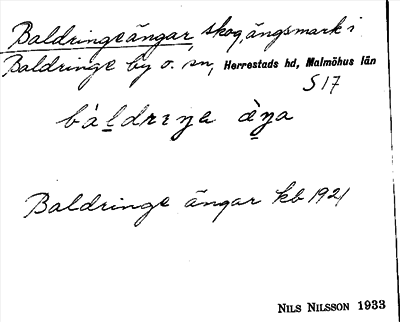 Baldringeängar, skog, ängsmark i
Baldringe by o. sn, Herrestads hd, Malmöhus län
S 17
bàldrɪŋa ӕ̀ŋa
Baldringe ängar kb 1921
NILS NILSSON 1933